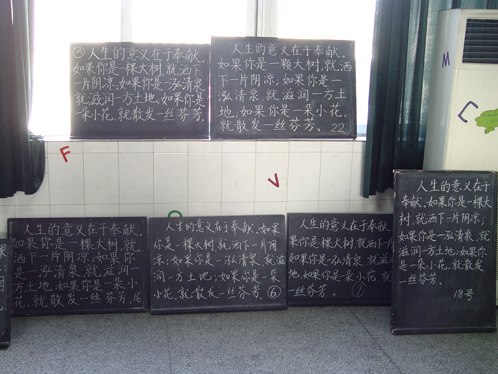 ㉛人生的意义在于奉献,
如果你是一棵大树,就洒下
一片阴凉;如果你是一泓清泉,
就滋润一方土地;如果你是
一朵小花,就散发一丝芬芳.
人生的意义在于奉献.
如果你是一颗大树,就洒
下一片阴凉;如果你是一
泓清泉,就滋润一方土
地,如果你是一朵小花,
就散发一丝芬芳。 22
M
C
F
V
人生的意义在于奉献,
如果你是一棵大树,就
洒下一片阴凉;如果你
是一泓清泉,就滋润一
方土地;如果你是一朵小花,
就散发一丝芬芳. 16
人生的意义在于奉献.如果
你是一棵大树,就洒下一片阴
凉;如果你是一泓清泉,就滋
润一方土地;如果你是一朵
小花,就散发一丝芬芳. ⑥
人生的意义在于奉献
如果你是一棵大树,就洒下片
阴凉;如果你是一泓清泉,就滋润
一方土地,如果你是一朵小花,就
散发一丝芬芳. ⑦
人生的意义在于
奉献.如果你是一棵大
树,就洒下一片阴凉;
如果你是一泓清泉,就
滋润一方土地;如果你
是一朵小花,就散发
一丝芬芳.
18号